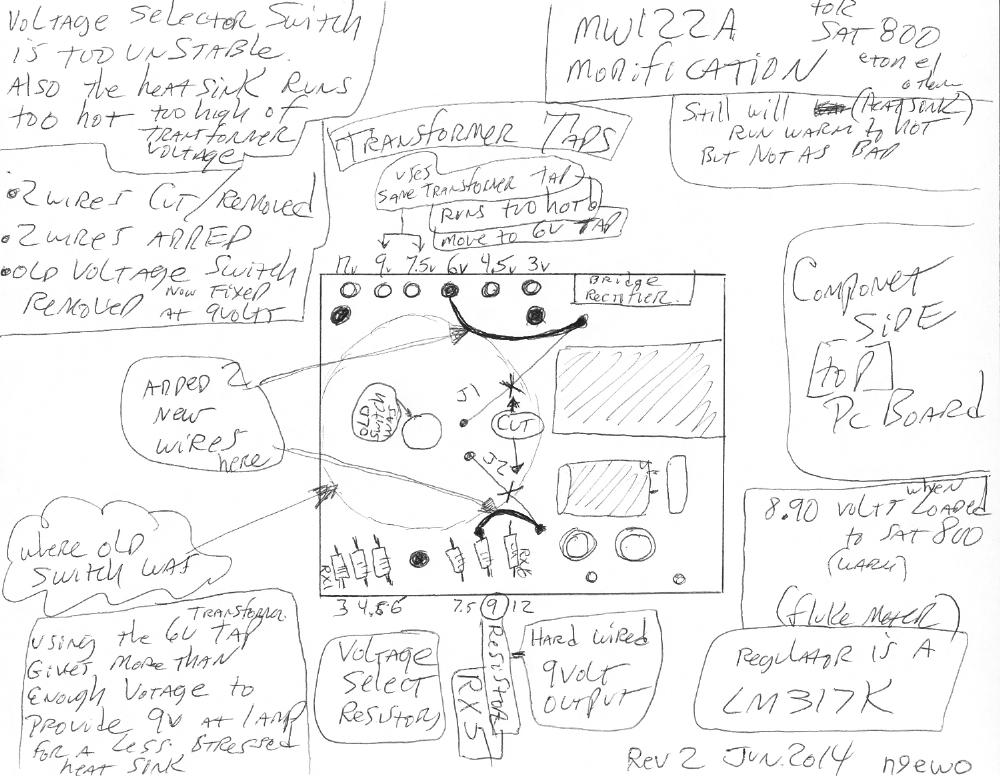 VOLTAGE SELECTOR SWITCH
IS TOO UNSTABLE.
ALSO THE HEATSINK RUNS
TOO HOT TOO HIGH OF
TRANSFORMER
VOLTAGE
• 2 WIRES CUT/REMOVED
• 2 WIRES ADDED
• OLD VOLTAGE SWITCH
REMOVED NOW FIXED
AT 9VOLT
MW122A
MODIFICATION
FOR
SAT 800
ETON E1
OTHER
STILL WILL (HEATSINK)
RUN WARM to HOT
BUT NOT AS BAD
TRANSFORMER TAPS
USES
SAME TRANSFORMER TAP
RUNS TOO HOT
MOVE to 6V TAP
12v 9v 7.5v 6v 4.5v 3v
BRIDGE
RECTIFIER
COMPONET
SIDE
TOP
PC BOARD
ADDED 2
NEW
WIRES
here
OLD
SWITCH
J1
CUT
J2
WHERE OLD
SWITCH WAS
RX1
RX6
3 4.5 6 7.5 9 12
8.90 VOLT WHEN LOADED
to SAT 800
(FLUKE METER)
REGULATOR IS A
LM317K
USING the 6V TRANSFORMER TAP
GIVES MORE THAN
ENOUGH VOTAGE to
PROVIDE 9V AT 1 AMP
FOR A LESS STRESSED
HEAT SINK
VOLTAGE
SELECT
RESISTORS
RESISTOR
RX5
HARD WIRED
9VOLT
OUTPUT
Rev 2 JUN.2014 n9ewo